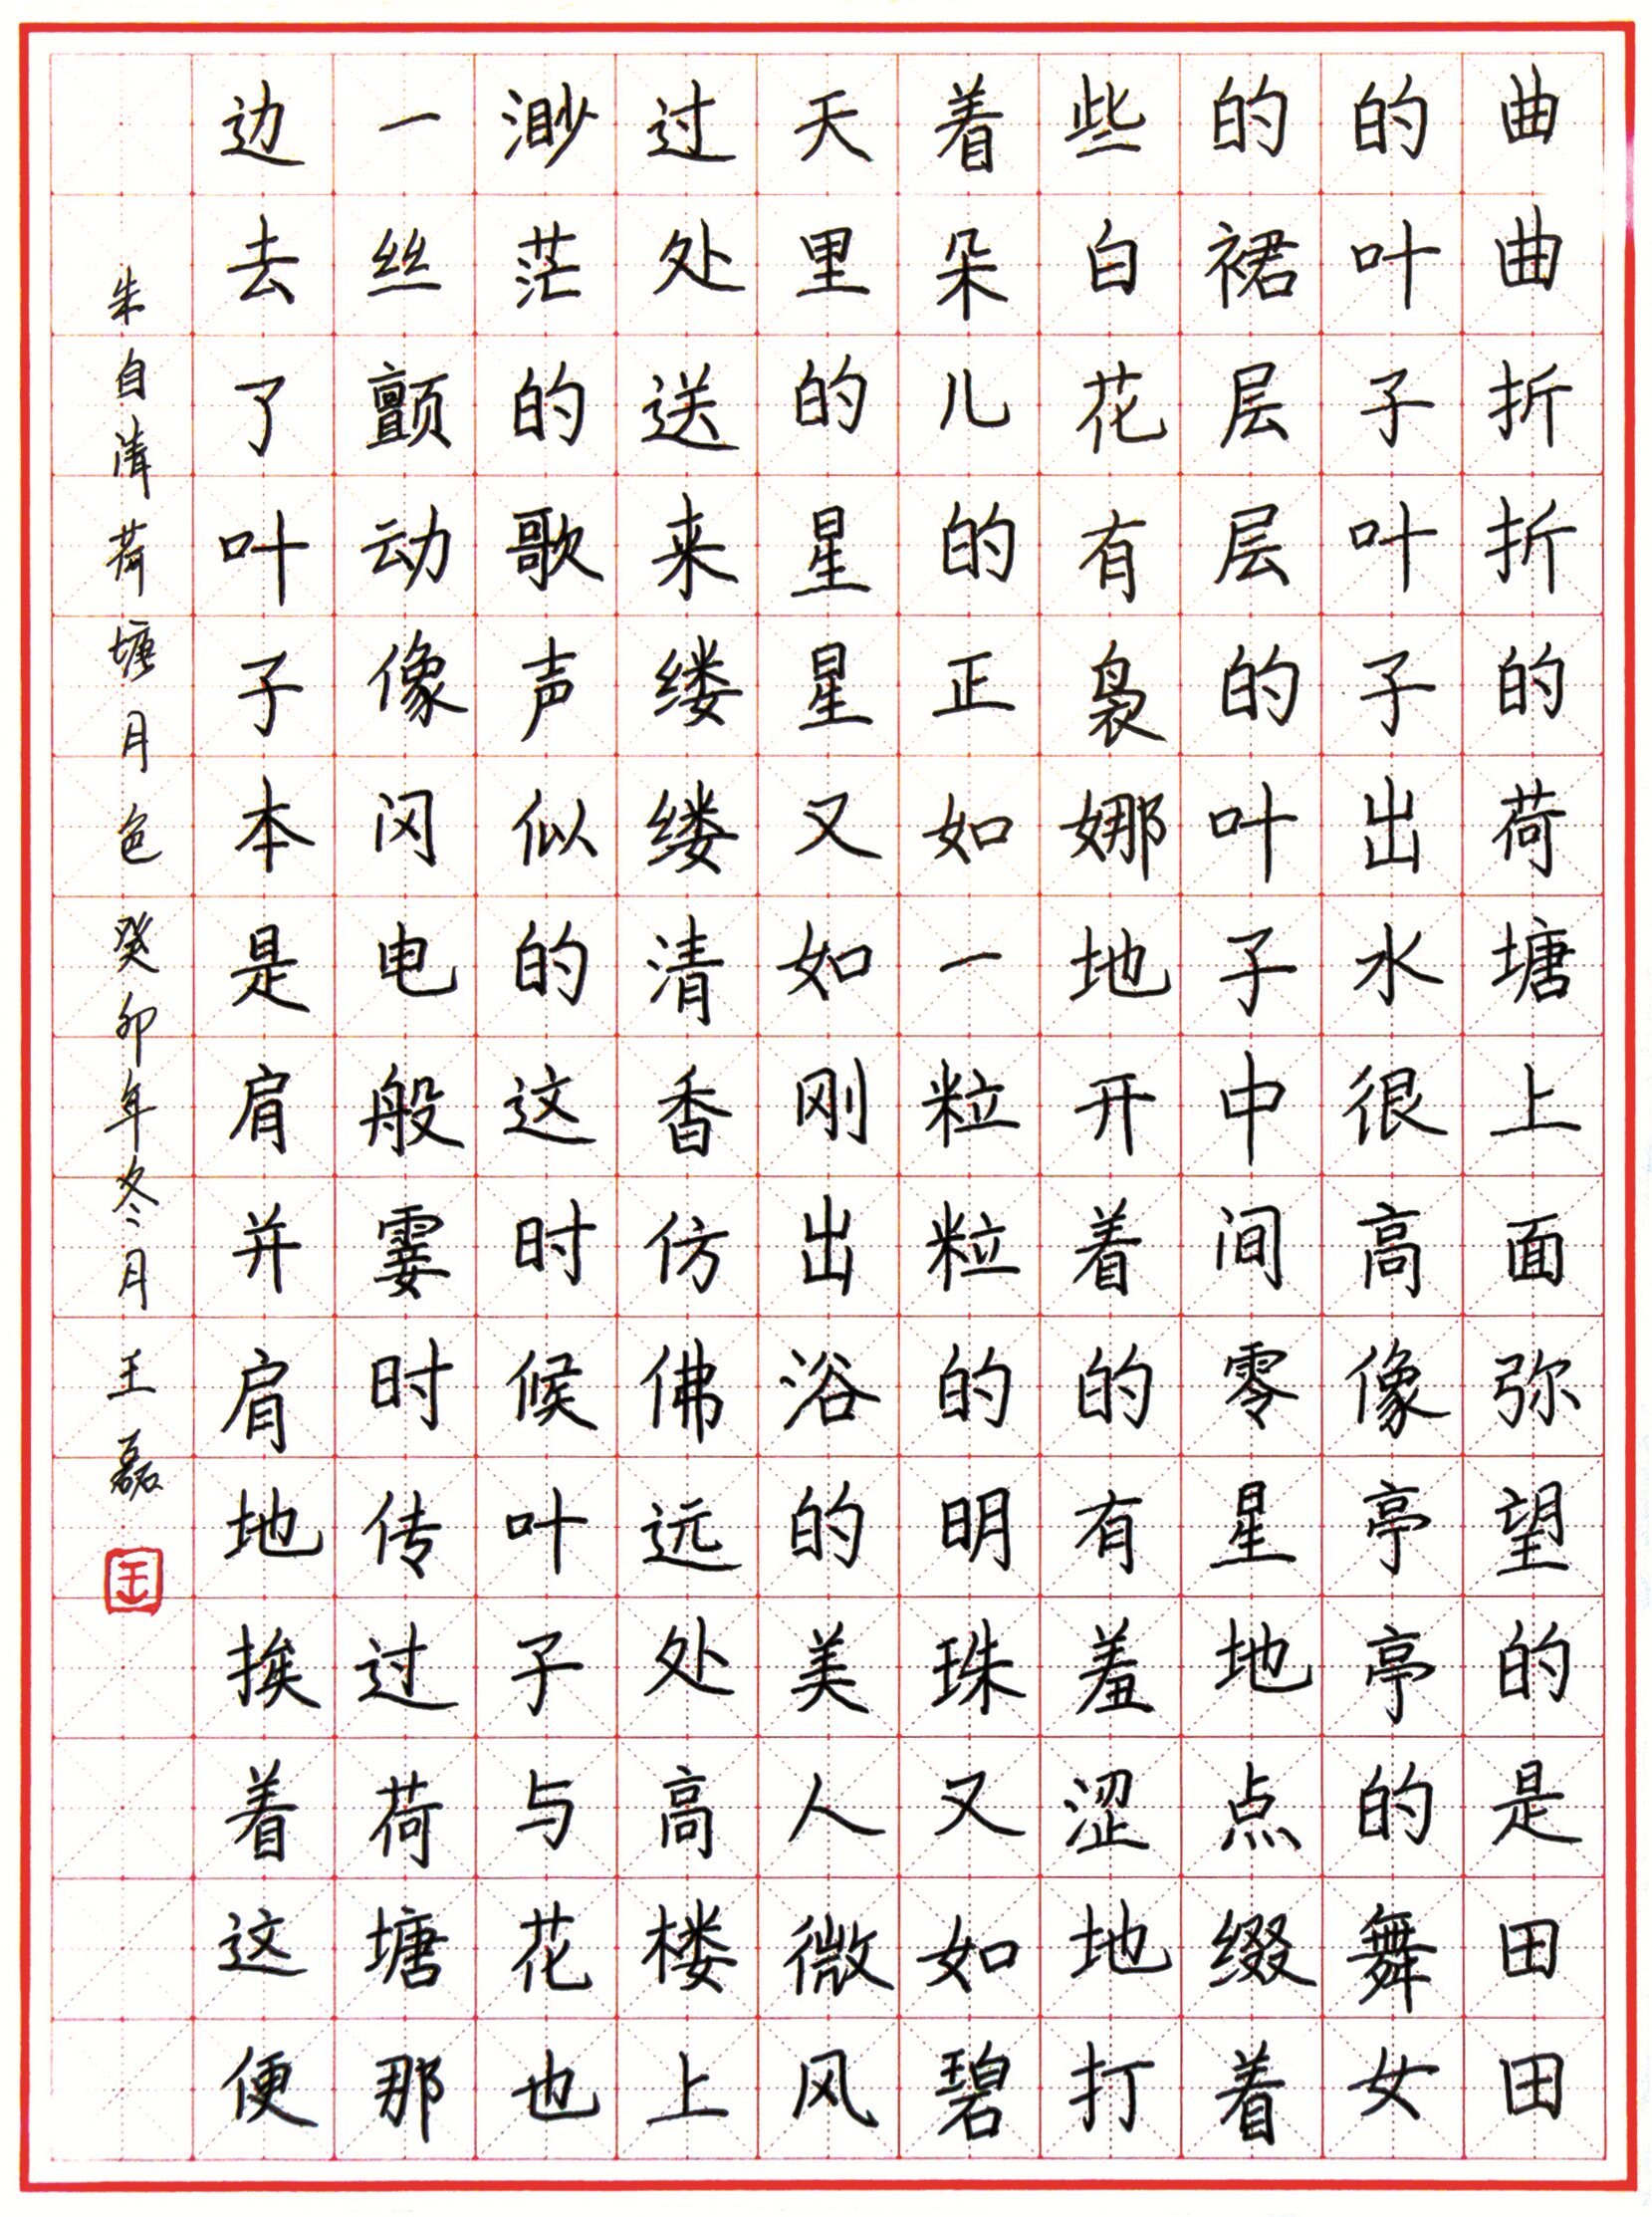 曲曲折折的荷塘上面弥望的是田田
的叶子叶子出水很高像亭亭的舞女
的裙层层的叶子中间零星地点缀着
些白花有袅娜地开着的有羞涩地打
着朵儿的正如一粒粒的明珠又如碧
天里的星星又如刚出浴的美人微风
过处送来缕缕清香仿佛远处高楼上
渺茫的歌声似的这时候叶子与花也
一丝颤动像闪电般霎时传过荷塘那
边去了叶子本是肩并肩地挨着这便
朱自清荷塘月色癸卯年冬月王磊
王